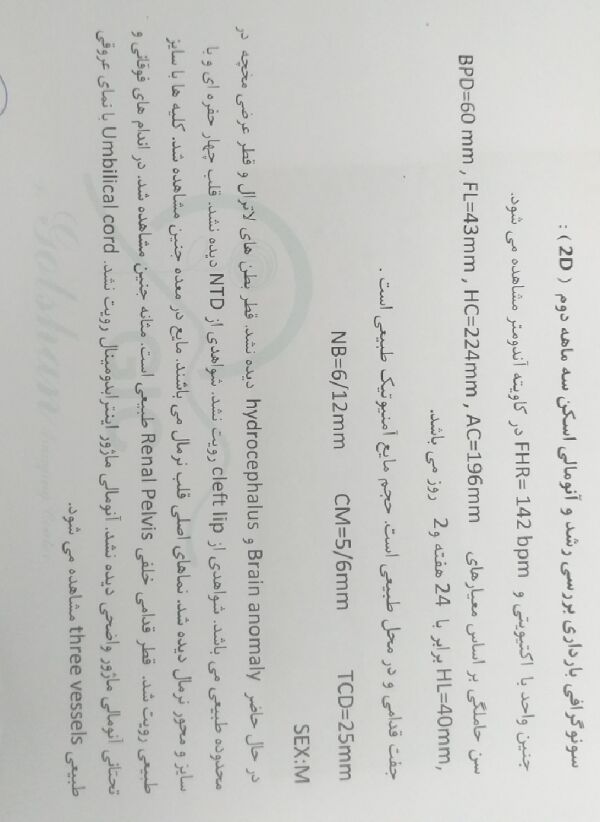 سونوگرافی بارداری بررسی رشد و آنومالی اسکن سه ماهه دوم ( 2D ) :
جنین واحد با اکتیویتی و FHR= 142 bpm در کاویته آندومتر مشاهده می شود.
سن حاملگی بر اساس معیارهای BPD=60 mm , FL=43mm , HC=224mm , AC=196mm
HL=40mm, برابر با 24 هفته و 2 روز می باشد.
جفت قدامی و در محل طبیعی است. حجم مایع آمنیوتیک طبیعی است .
NB=6/12mm CM=5/6mm TCD=25mm
SEX:M
در حال حاضر Brain anomaly و hydrocephalus دیده نشد. قطر بطن های لاترال و قطر عرضی مخچه در
محدوده طبیعی می باشد. شواهدی از cleft lip رویت نشد. شواهدی از NTD دیده نشد. قلب چهار حفره ای و با
سایز و محور نرمال دیده شد. نماهای اصلی قلب نرمال می باشند. مایع در معده جنین مشاهده شد. کلیه ها با سایز
طبیعی رویت شد. قطر قدامی خلفی Renal Pelvis طبیعی است. مثانه جنین مشاهده شد. در اندام های فوقانی و
تحتانی آنومالی ماژور واضحی دیده نشد. آنومالی ماژور اینترابدومینال رویت نشد. Umbilical cord با نمای عروقی
طبیعی three vessels مشاهده می شود.
Golshan